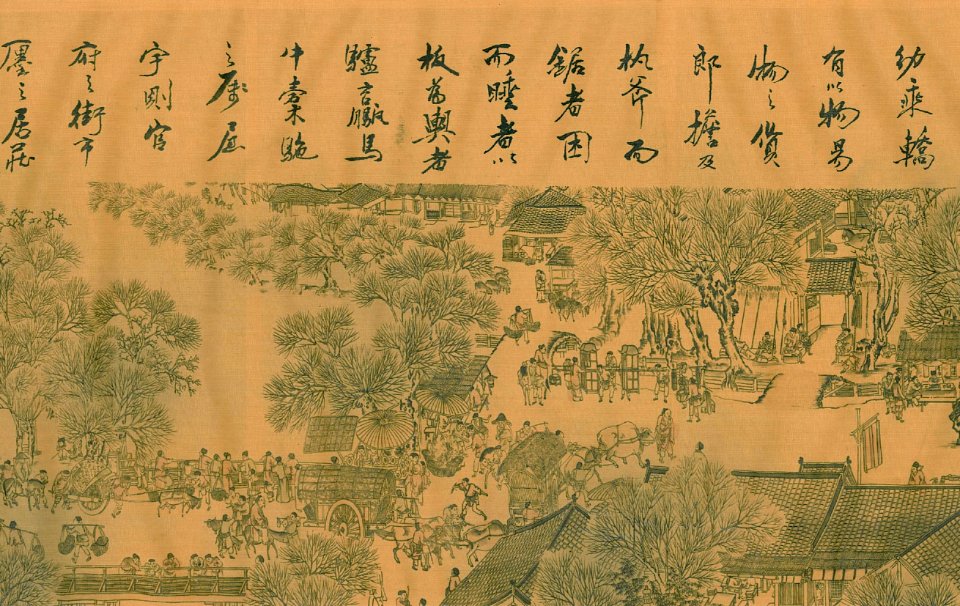 幼乘轎
有以物易
物之貨
郎擔及
斧而
鋸者困
而睡者以
板為輿者
驢馬
牛橐駝
之屬屋
宇則官
府之街市
之居莊